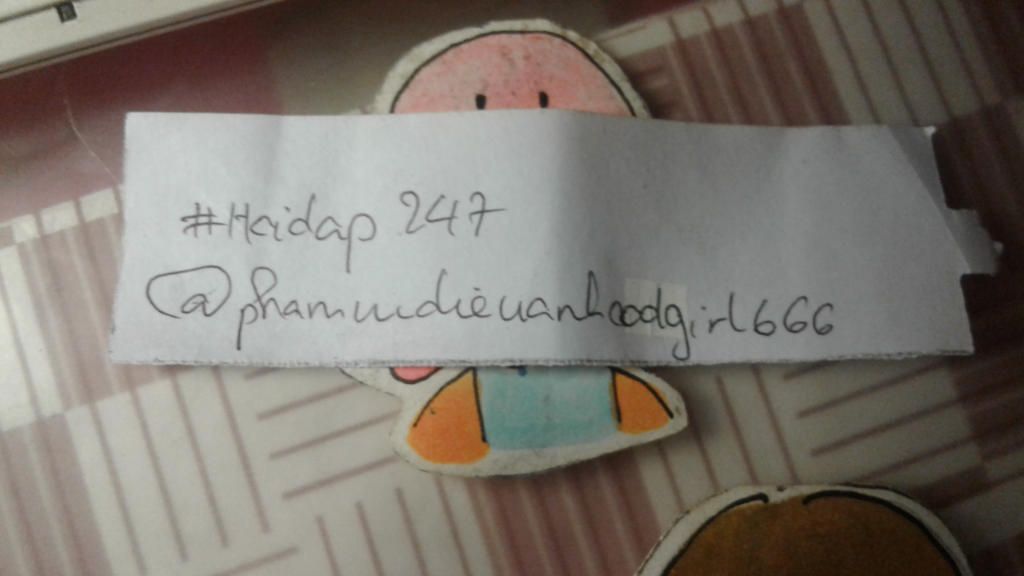 #Hoidap 247
@phamvudieuanhoodgirl666